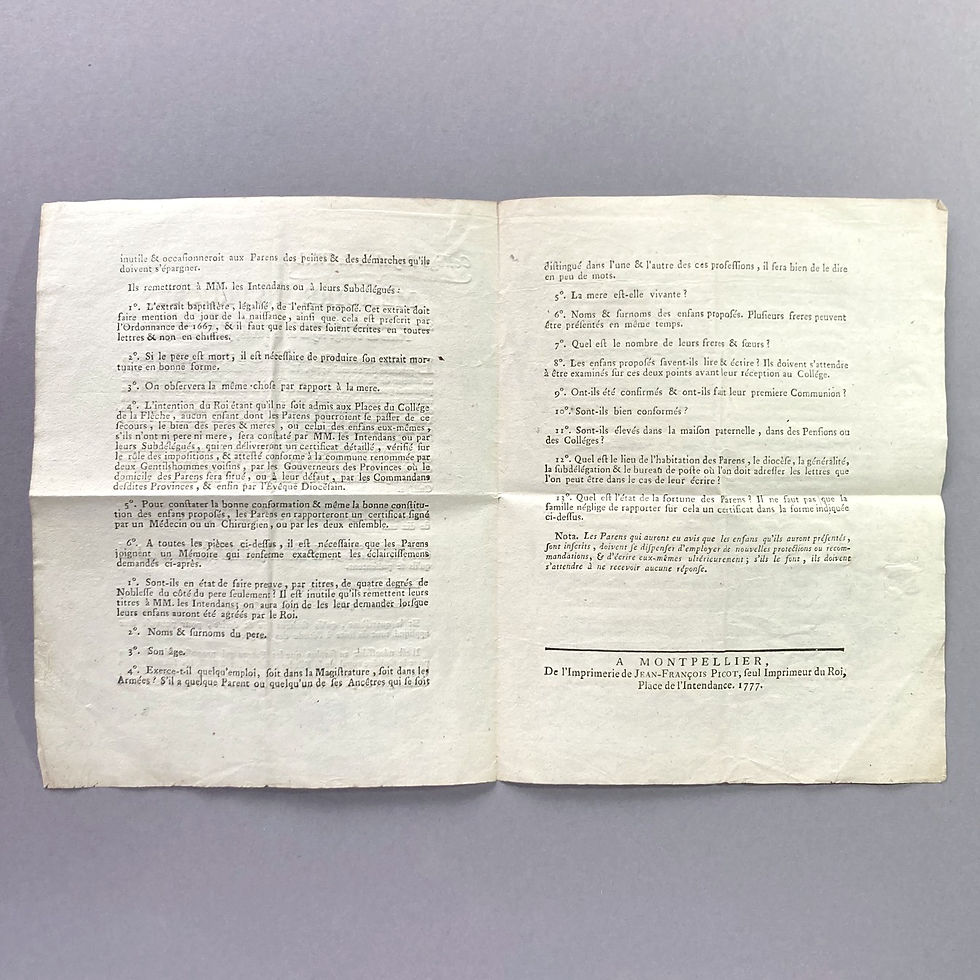 inutile & occaſionneroit aux Parens des peines & des démarches qu'ils
doivent s'épargner.
Ils remettront à MM. les Intendans ou à leurs Subdélégués :
1°. L'extrait baptiſtère, légaliſé, de l'enfant propoſé. Cet extrait doit
faire mention du jour de la naiſſance, ainſi que cela eſt preſcrit par
l'Ordonnance de 1667, & il faut que les dates ſoient écrites en toutes
lettres & non en chiffres.
2°. Si le pere eſt mort, il eſt néceſſaire de produire ſon extrait mor-
tuaire en bonne forme.
3°. On obſervera la même choſe par rapport à la mere.
4°. L'intention du Roi étant qu'il ne ſoit admis aux Places du Collége
de la Flèche, aucun enfant dont les Parens pourroient ſe paſſer de ce
ſecours, le bien des peres & meres, ou celui des enfans eux-mêmes,
s'ils n'ont ni pere ni mere, ſera conſtaté par MM. les Intendans ou par
leurs Subdélégués, qui en délivreront un certificat détaillé, vérifié ſur
le rôle des impoſitions, & atteſté conforme à la commune renommée par
deux Gentilshommes voiſins, par les Gouverneurs des Provinces où le
domicile des Parens ſera ſitué, ou à leur défaut, par les Commandans
deſdites Provinces, & enfin par l'Evêque Diocéſain.
5°. Pour conſtater la bonne conformation & même la bonne conſtitu-
tion des enfans propoſés, les Parens en rapporteront un certificat ſigné
par un Médecin ou un Chirurgien, ou par les deux enſemble.
6°. A toutes les pièces ci-deſſus, il eſt néceſſaire que les Parens
joignent un Mémoire qui renferme exactement les éclairciſſemens
demandés ci-après.
1°. Sont-ils en état de faire preuve, par titres, de quatre degrés de
Nobleſſe du côté du pere ſeulement ? Il eſt inutile qu'ils remettent leurs
titres à MM. les Intendans; on aura ſoin de les leur demander lorſque
leurs enfans auront été agréés par le Roi.
2°. Noms & ſurnoms du pere.
3°. Son âge.
4°. Exerce-t-il quelqu'emploi, ſoit dans la Magiſtrature, ſoit dans les
Armées ? S'il a quelque Parent ou quelqu'un de ſes Ancêtres qui ſe ſoit
diſtingué dans l'une & l'autre des ces profeſſions, il ſera bien de le dire
en peu de mots.
5°. La mere eſt-elle vivante ?
6°. Noms & ſurnoms des enfans propoſés. Pluſieurs freres peuvent
être préſentés en même temps.
7°. Quel eſt le nombre de leurs freres & ſœurs ?
8°. Les enfans propoſés ſavent-ils lire & écrire ? Ils doivent s'attendre
à être examinés ſur ces deux points avant leur réception au Collége.
9°. Ont-ils été confirmés & ont-ils fait leur premiere Communion ?
10°. Sont-ils bien conformés ?
11°. Sont-ils élevés dans la maiſon paternelle, dans des Penſions ou
des Colléges ?
12°. Quel eſt le lieu de l'habitation des Parens, le diocèſe, la généralité,
la ſubdélégation & le bureau de poſte où l'on doit adreſſer les lettres que
l'on peut être dans le cas de leur écrire ?
13°. Quel eſt l'état de la fortune des Parens ? Il ne faut pas que la
famille néglige de rapporter ſur cela un certificat dans la forme indiquée
ci-deſſus.
Nota. Les Parens qui auront eu avis que les enfans qu'ils auront préſentés,
ſont inſcrits, doivent ſe diſpenſer d'employer de nouvelles protections ou recom-
mandations, & d'écrire eux-mêmes ultérieurement ; s'ils le font, ils doivent
s'attendre à ne recevoir aucune réponſe.
A MONTPELLIER,
De l'Imprimerie de JEAN-FRANÇOIS PICOT, ſeul Imprimeur du Roi,
Place de l'Intendance. 1777.